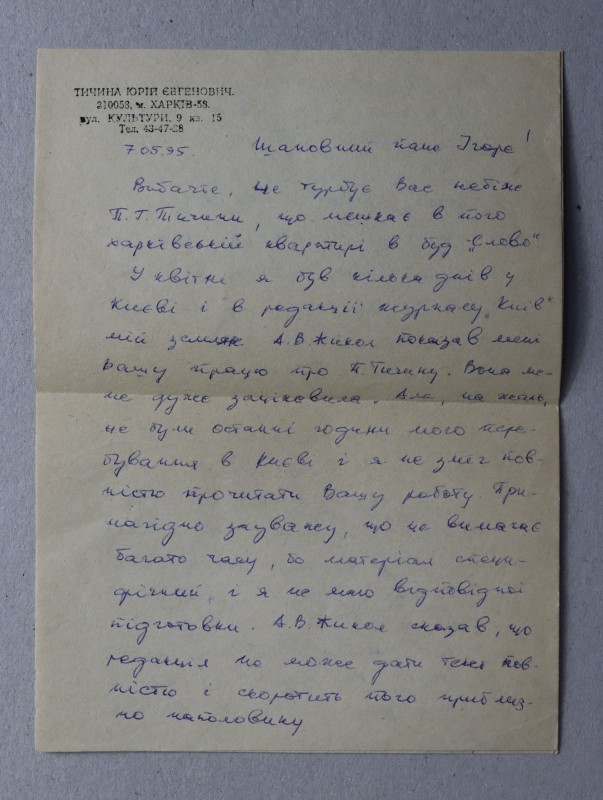 ТИЧИНА ЮРІЙ ЄВГЕНОВИЧ.
310058, м. ХАРКІВ-58.
вул. КУЛЬТУРИ, 9 кв. 15
Тел. 43-47-28
7.05.95. Шановний пане Ігоре!
Вибачте, це турбує Вас небіж
П. Г. Тичини, що мешкає в його
харківській квартирі в буд. „Слово"
У квітні я був кілька днів у
Києві і в редакції журналу „Київ"
мій земляк А.В. Жикол показав мені
Вашу працю про П Тичину. Вона ме-
не дуже зацікавила. Але, на жаль,
це були останні години мого пере-
бування в Києві і я не зміг пов-
ністю прочитати Вашу роботу. При-
нагідно зауважу, що це вимагає
багато часу, бо матеріал специ-
фічний, і я не маю відповідної
підготовки. А.В. Жикол сказав, що
редакція не може дати текст пов-
ністю і скоротить його приблиз-
но наполовину